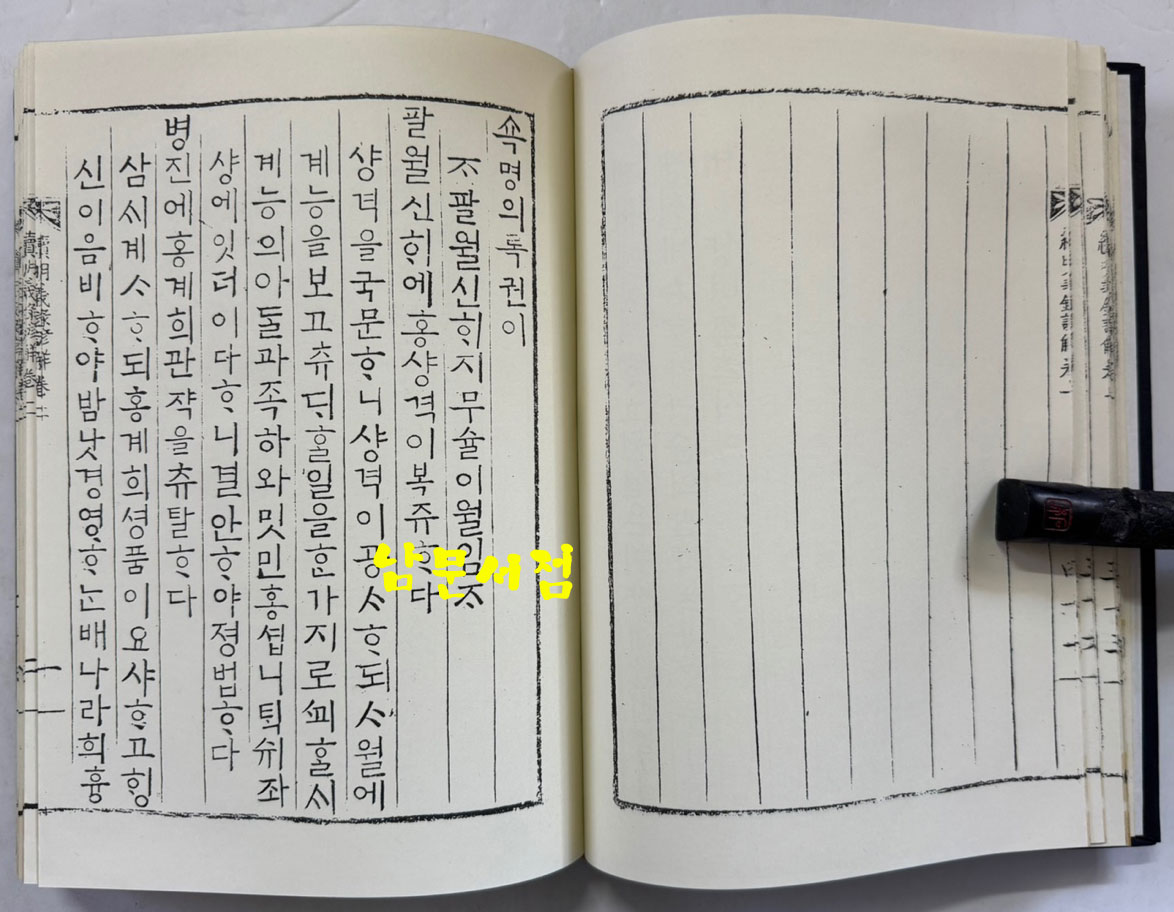 쇽명의록권이
ᄌᆞ팔월신ᄒᆡ지무슐이월임ᄌᆞ
팔월신ᄒᆡ에홍샹격이복쥬ᄒᆞ다
샹격을국문ᄒᆞ니샹격이공ᄉᆞᄒᆞ되ᄉᆞ월에
계능을보고츄ᄃᆡᄒᆞᆯ일을ᄒᆞᆫ가지로ᄭᅬᄒᆞᆯᄉᆡ
계능의아ᄃᆞᆯ과족하와밋민홍셥니ᄐᆡᆨ쉬좌
샹에잇더이다ᄒᆞ니결안ᄒᆞ야졍법ᄒᆞ다
병진에홍계희관쟉을츄탈ᄒᆞ다
삼ᄉᆡ계ᄉᆞᄒᆞ되홍계희셩품이요샤ᄒᆞ고ᄒᆡᆼ
신이음비ᄒᆞ야밤낫경영ᄒᆞᄂᆞᆫ배나라희흉
續明義錄諺解卷二
남문서점